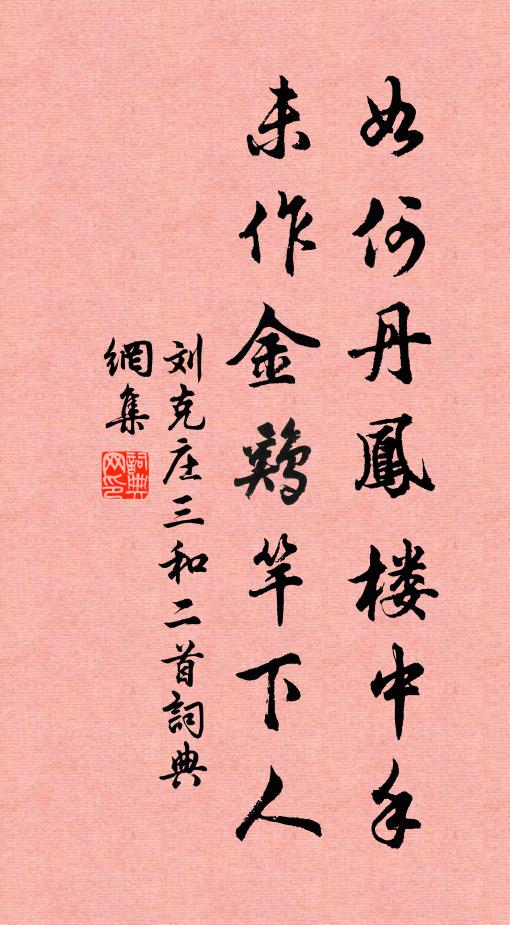 如何丹鳳楼中手
未作金鷄竿下人
刘克庄三和二首詞典
網集
詞典
网印